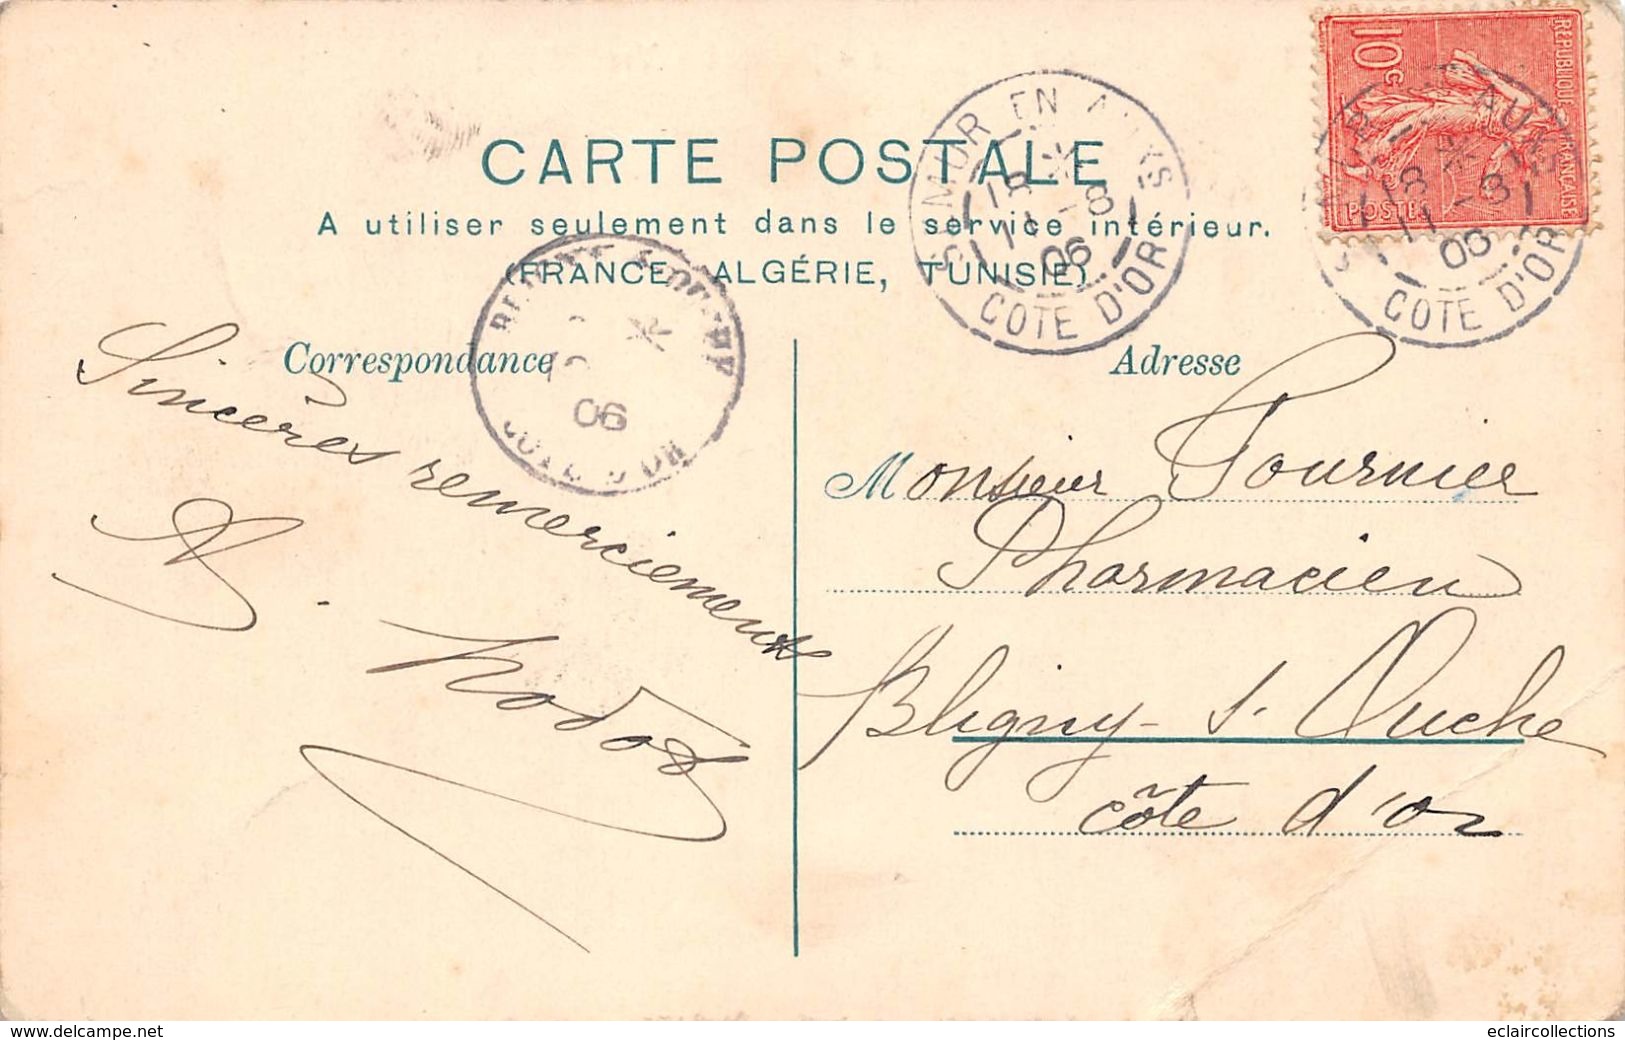 CARTE POSTALE
A utiliser seulement dans le service intérieur.
(FRANCE, ALGÉRIE, TUNISIE)
Correspondance
Adresse
10c
REPUBLIQUE FRANÇAISE
POSTES
SEMUR EN AUXOIS
18
11 - 8
06
COTE D'OR
18
11 - 8
06
COTE D'OR
06
Sincères remerciements
Monsieur Fournier
Pharmacien
Bligny - s. Ouche
côte d'or
www.delcampe.net
eclaircollections